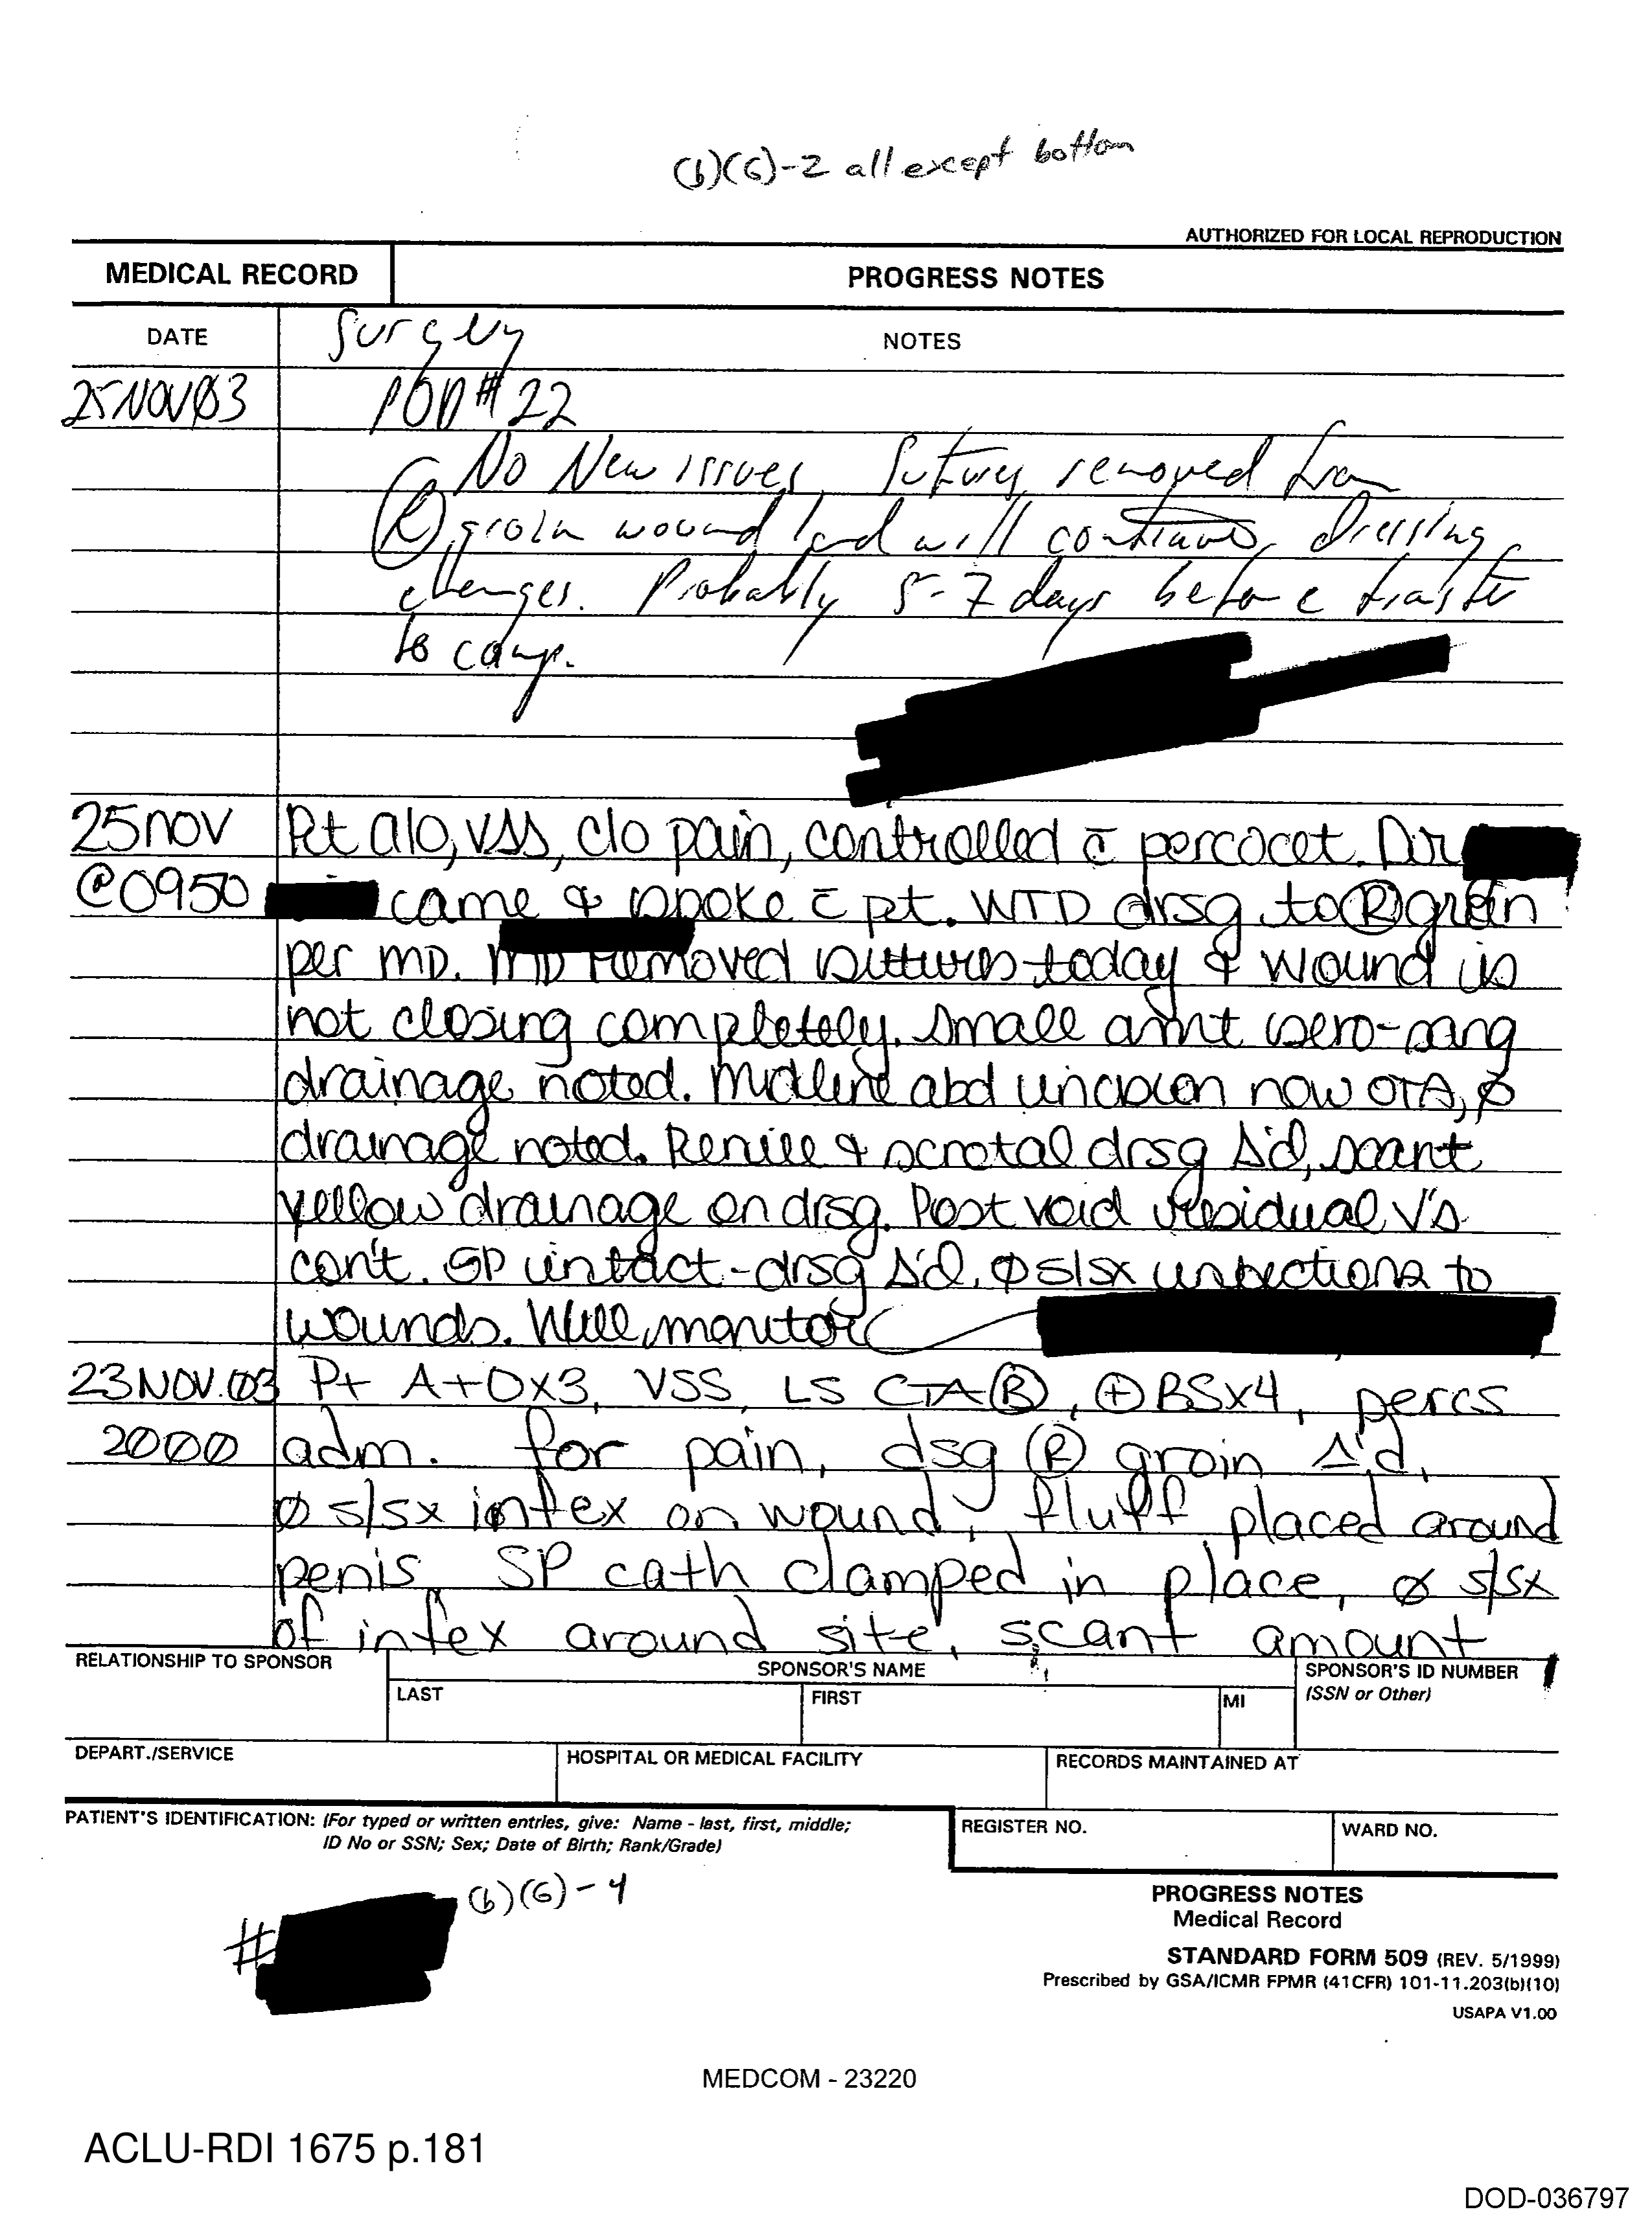 (b)(6)-2 all except bottom
AUTHORIZED FOR LOCAL REPRODUCTION
MEDICAL RECORD PROGRESS NOTES
DATE Surgery NOTES
25NOV03 POD #22
No New issues, Sutures removed from
(R) groin wound and will continue dressing
changes. Probably 5-7 days before transfer
to camp.
25nov Pt a/o, VSS, c/o pain, controlled c̄ percocet. Dr
@0950 came & spoke c̄ pt. WTD drsg to (R) groin
per MD. MD removed sutures today & wound is
not closing completely. Small amt sero-sang
drainage noted. Midline abd incision now OTA, ø
drainage noted. Penile & scrotal drsg Δ'd, scant
yellow drainage on drsg. Post void residual √'s
con't. SP intact - drsg Δ'd, ø s/sx infections to
wounds. Will monitor
23NOV.03 Pt A+Ox3, VSS, LS CTA (B), (+) BSx4, percs
2000 adm. for pain, dsg (R) groin Δ'd,
ø s/sx infex on wound, fluff placed around
penis, SP cath clamped in place, ø s/sx
of infex around site, scant amount
RELATIONSHIP TO SPONSOR SPONSOR'S NAME SPONSOR'S ID NUMBER
LAST FIRST MI (SSN or Other)
DEPART./SERVICE HOSPITAL OR MEDICAL FACILITY RECORDS MAINTAINED AT
PATIENT'S IDENTIFICATION: (For typed or written entries, give: Name - last, first, middle;
ID No or SSN; Sex; Date of Birth; Rank/Grade)
REGISTER NO. WARD NO.
(b)(6)-4
#
PROGRESS NOTES
Medical Record
STANDARD FORM 509 (REV. 5/1999)
Prescribed by GSA/ICMR FPMR (41CFR) 101-11.203(b)(10)
USAPA V1.00
MEDCOM - 23220
ACLU-RDI 1675 p.181
DOD-036797